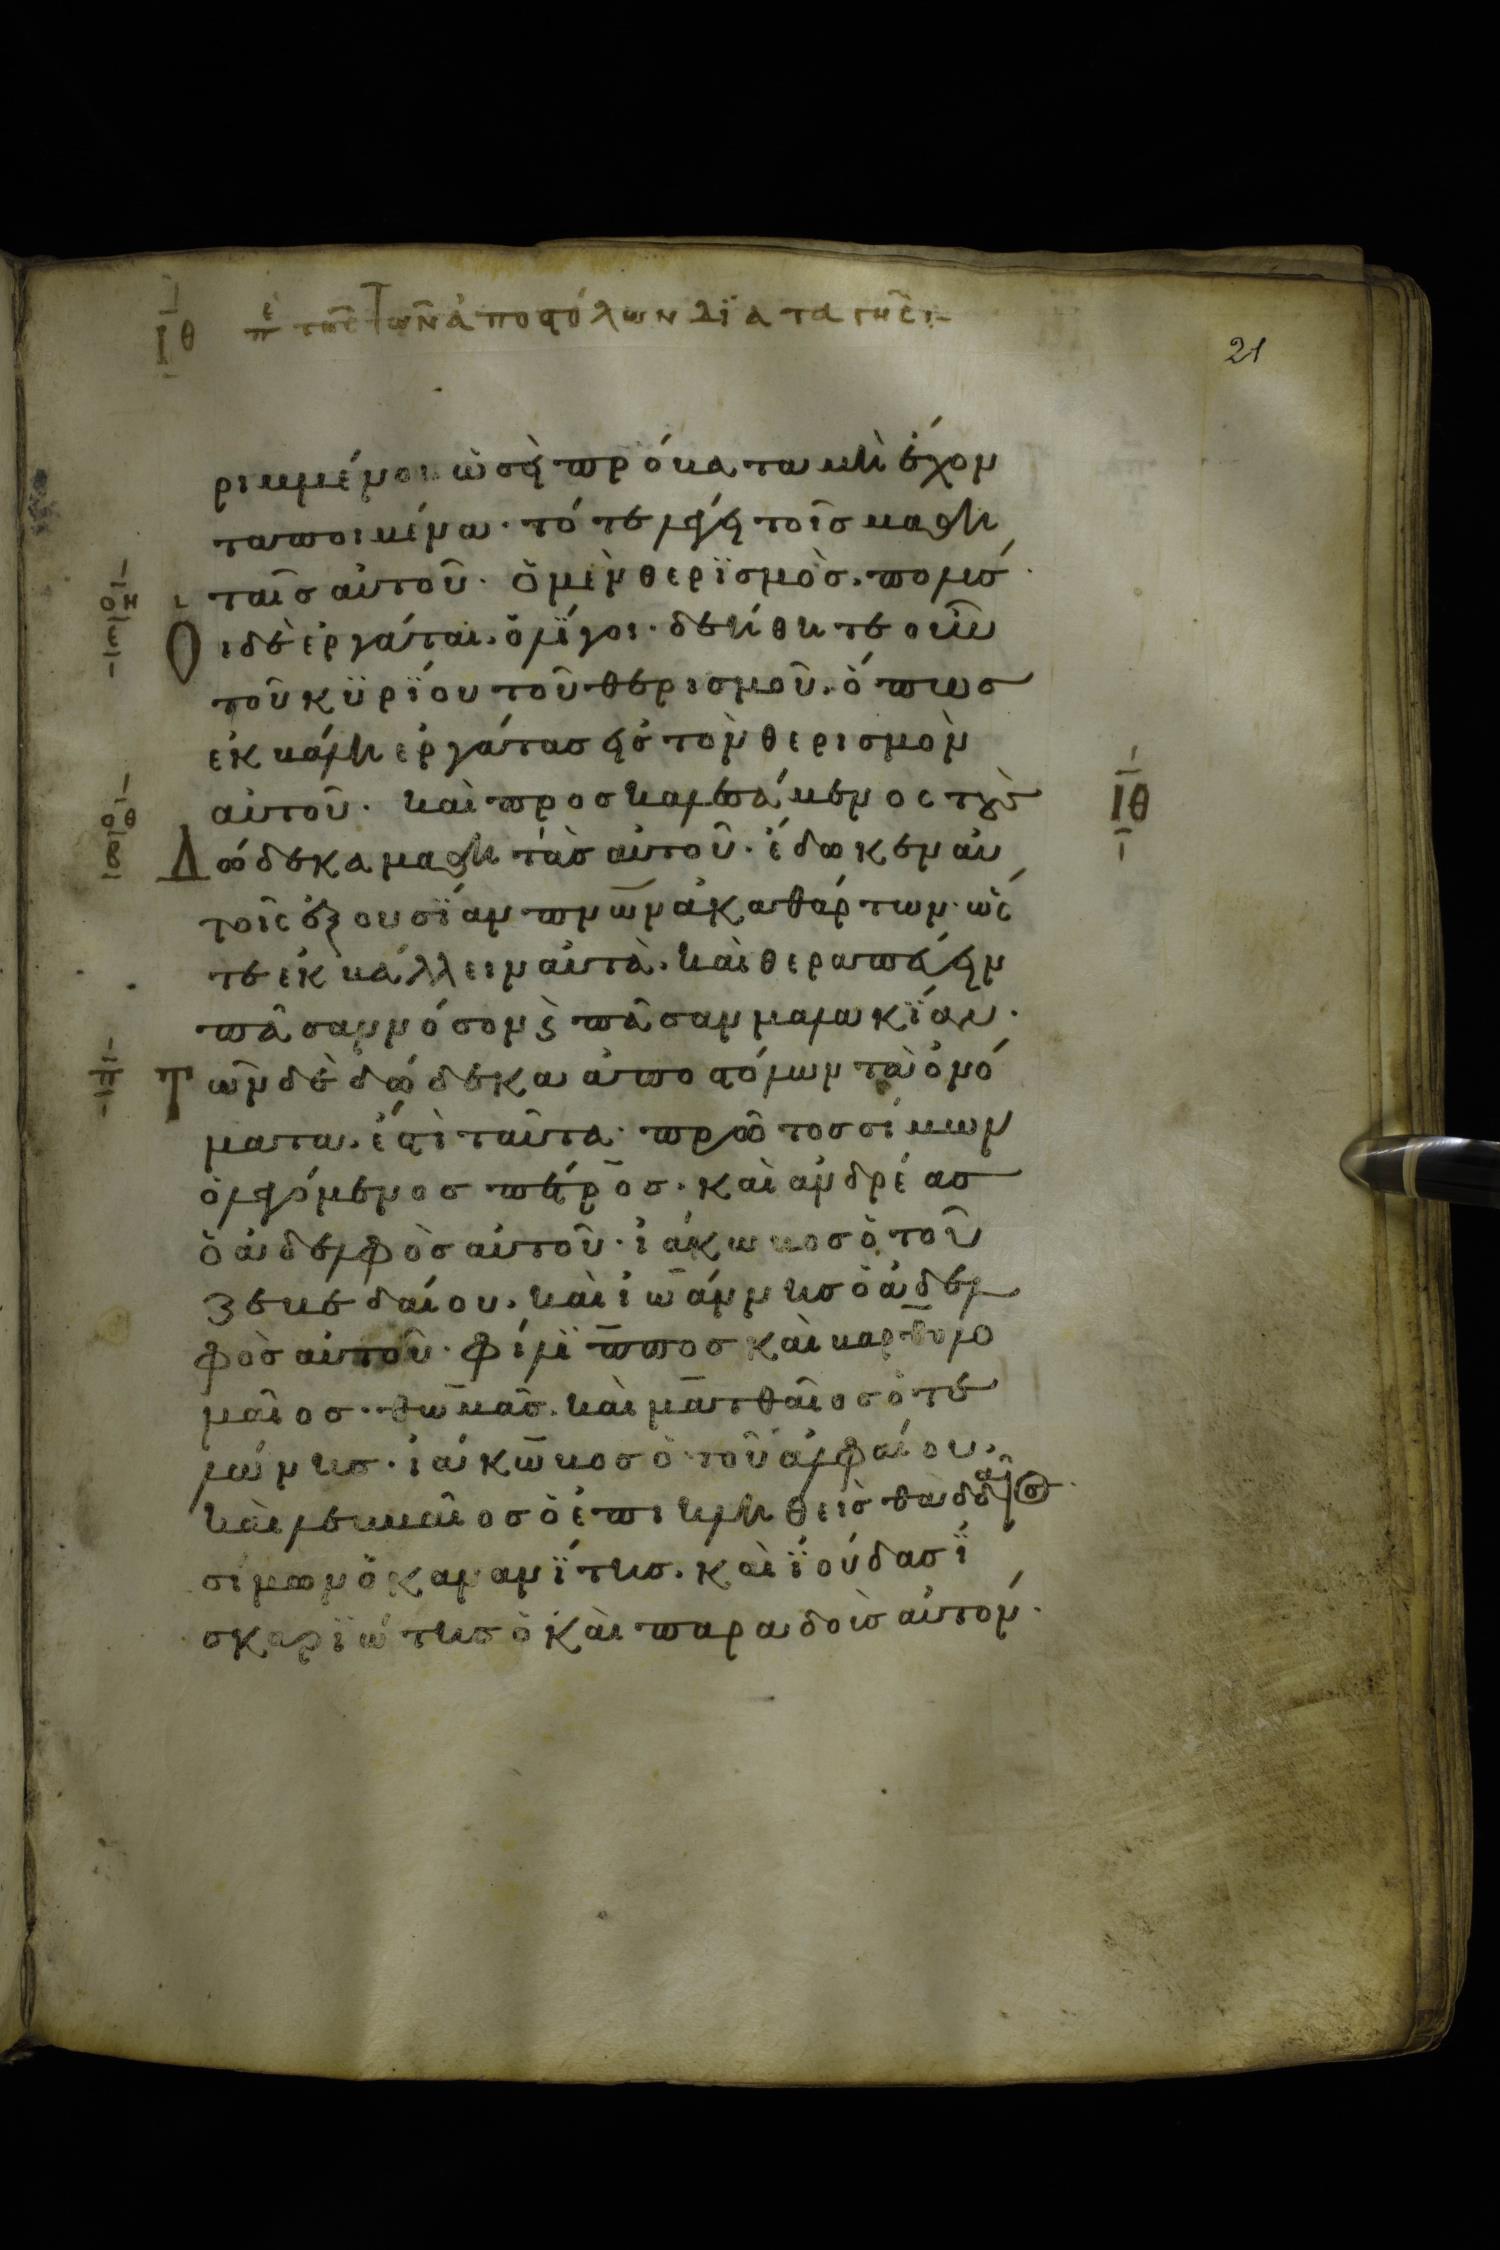 ΙΘ περὶ τῆς τῶν ἀποστόλων διαταγῆς
21
ριμμένοι ὡσεὶ πρόβατα μὴ ἔχον
τα ποιμένα· τότε λέγει τοῖς μαθη
ταῖς αὐτοῦ· ὁ μὲν θερϊσμὸς. πολύσ·
οη
ε
Ο ι δὲ ἐργάται. ὀλϊγοι· δεήθητε οὖν
τοῦ κϋρϊου τοῦ θερισμοῦ. ὅπως
ἐκβάλη ἐργάτας εἰς τὸν θερισμὸν
αὐτοῦ· καὶ προσκαλεσάμενος τοὺς
ΙΘ
οθ
β
Δ ώδεκα μαθητὰς αὐτοῦ· ἔδωκεν αὐ
τοῖς ἐξουσϊαν πνων ἀκαθάρτων· ὥσ
τε ἐκβάλλειν αὐτὰ. καὶ θεραπεύειν
πᾶσαν νόσον ϗ πᾶσαν μαλακϊαν·
π
Τ ῶν δὲ δώδεκα ἀποστόλων τὰ ὀνό
ματα. ἐστὶ ταῦτα· πρῶτος σίμων
ὁ λεγόμενος πέτρος· καὶ ἀνδρέας
ὁ ἀδελφὸς αὐτοῦ· ἰάκωβος ὁ τοῦ
ζεβεδαίου. καὶ ἰωάννης ὁ ἀδελ
φὸς αὐτοῦ· φίλϊππος καὶ βαρθολο
μαῖος· θωμᾶς. καὶ ματθαῖος ὁ τε
λώνης· ἰάκωβος ὁ τοῦ ἀλφαίου.
καὶ λεββαῖος ὁ ἐπικληθεὶς θαδδαῖος·
σίμων ὁ κανανϊτης. καὶ ϊούδας ϊ
σκαρϊώτης ὁ καὶ παραδοὺς αὐτόν·